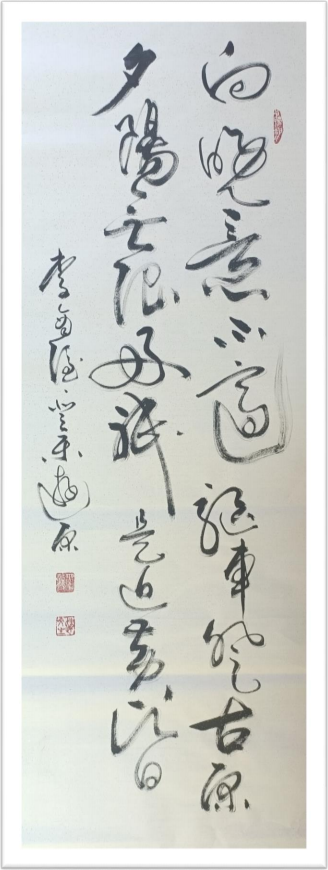 向晚意不適驅車登古原
夕陽無限好祇是近黃昏
李商隱登樂遊原